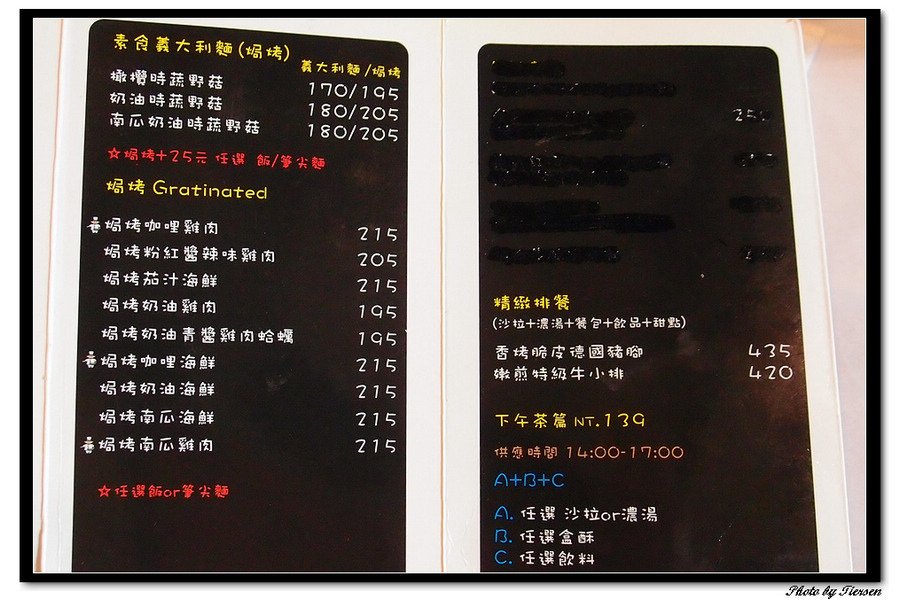 素食義大利麵(焗烤)
義大利麵/焗烤
橄欖時蔬野菇 170/195
奶油時蔬野菇 180/205
南瓜奶油時蔬野菇 180/205
☆焗烤+25元 任選 飯/筆尖麵
焗烤 Gratinated
焗烤咖哩雞肉 215
焗烤粉紅醬辣味雞肉 205
焗烤茄汁海鮮 215
焗烤奶油雞肉 195
焗烤奶油青醬雞肉蛤蠣 195
焗烤咖哩海鮮 215
焗烤奶油海鮮 215
焗烤南瓜海鮮 215
焗烤南瓜雞肉 215
☆任選飯or筆尖麵
精緻排餐
(沙拉+濃湯+餐包+飲品+甜點)
香烤脆皮德國豬腳 435
嫩煎特級牛小排 420
下午茶篇 NT.139
供應時間 14:00-17:00
A+B+C
A. 任選 沙拉or濃湯
B. 任選盒酥
C. 任選飲料
Photo by Tiersen